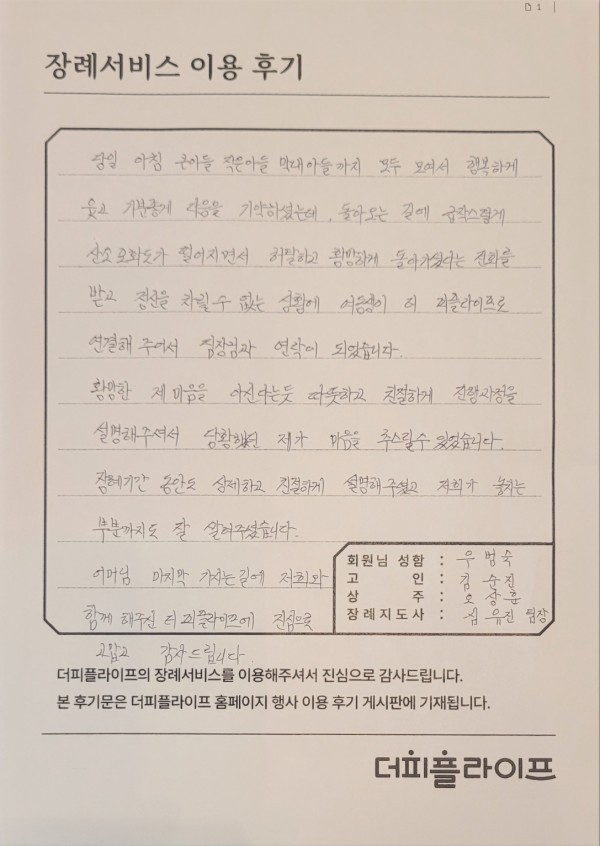 장례서비스 이용 후기
당일 아침 큰아들 작은아들 막내아들까지 모두 모여서 행복하게
웃고 기분좋게 다음을 기약하셨는데, 돌아오는 길에 급작스럽게
산소포화도가 떨어지면서 허탈하고 황망하게 돌아가셨다는 전화를
받고 정신을 차릴 수 없는 상황에 여동생이 더 피플라이프로
연결해 주어서 팀장님과 연락이 되었습니다.
황망한 제 마음을 아신다는듯 따뜻하고 친절하게 진행사정을
설명해주셔서 당황했던 제가 마음을 추스릴수 있었습니다.
장례기간 동안도 상세하고 친절하게 설명해주셨고 저희가 놓치는
부분까지도 잘 살펴주셨습니다.
어머님 마지막 가시는길에 저희와
함께 해주신 더 피플라이프에 진심으로
고맙고 감사드립니다.
회원님 성함 : 우범숙
고 인 : 김순진
상 주 : 오상훈
장례지도사 : 심유진 팀장
더피플라이프의 장례서비스를 이용해주셔서 진심으로 감사드립니다.
본 후기문은 더피플라이프 홈페이지 행사 이용 후기 게시판에 기재됩니다.
더피플라이프